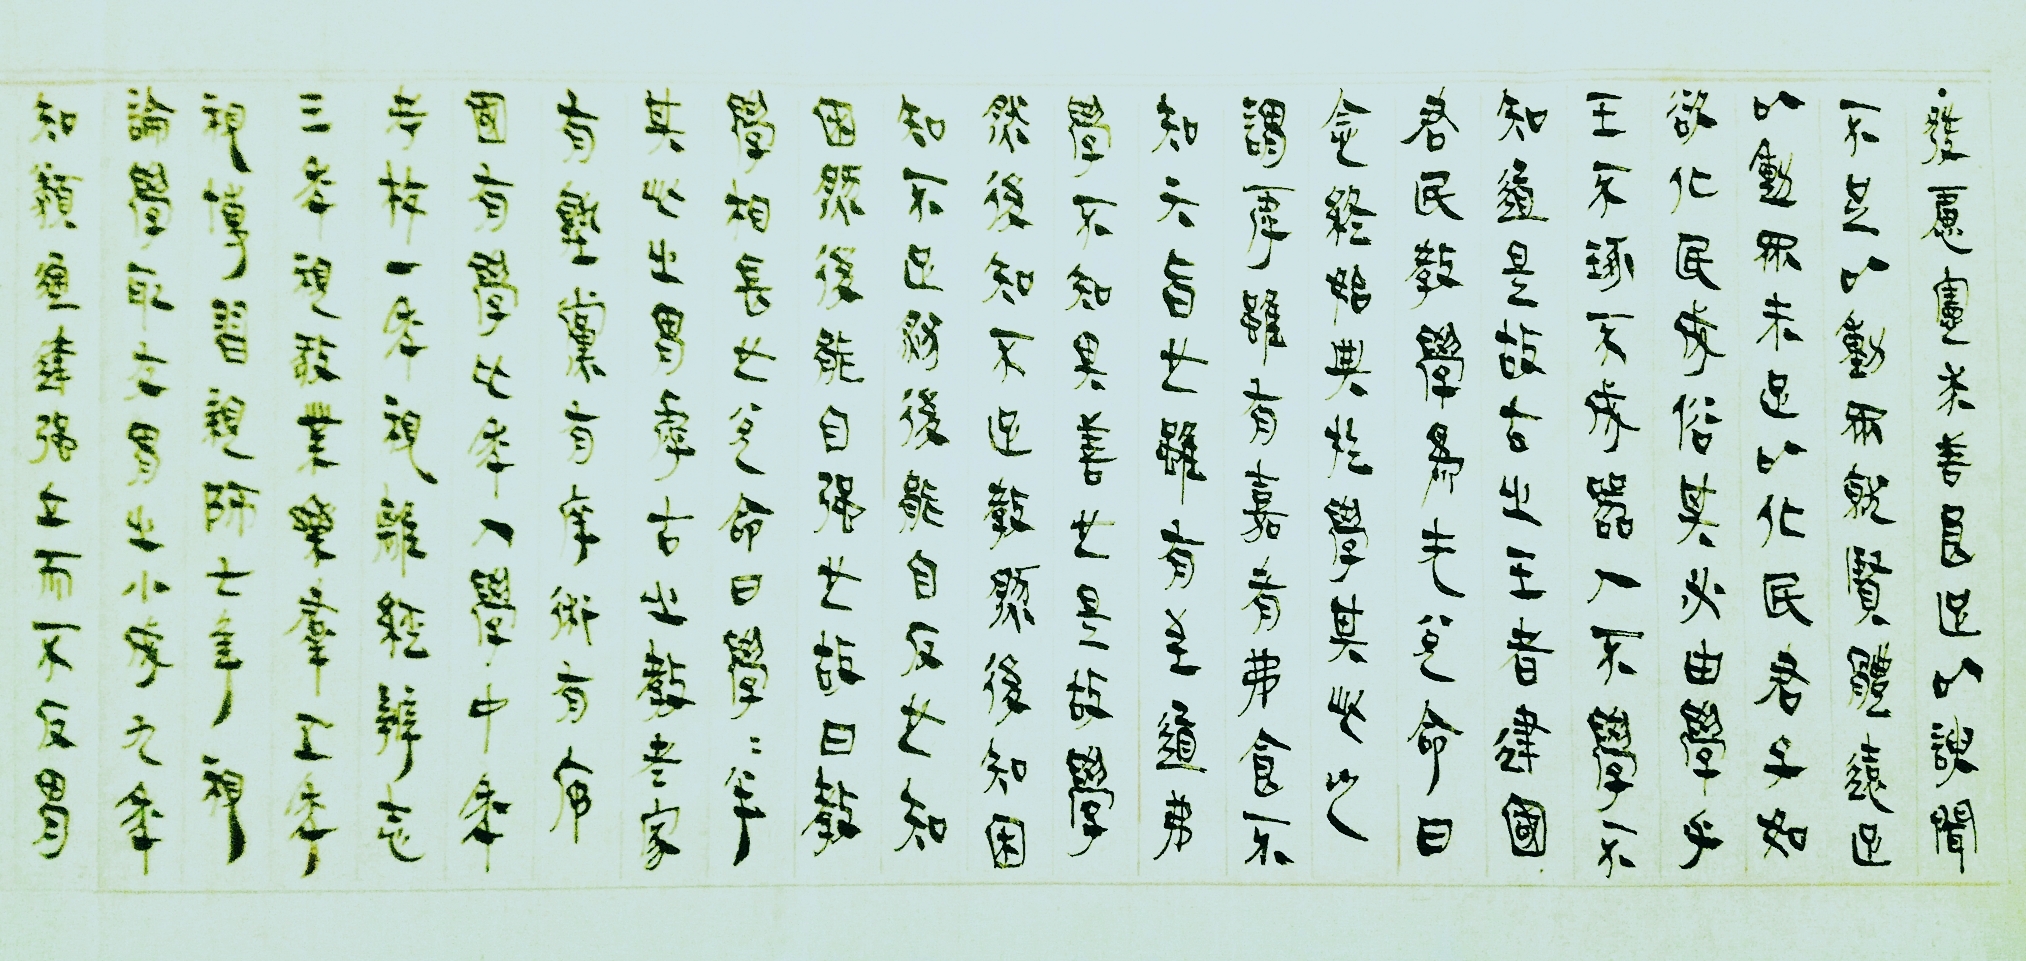 發慮憲求善良足以謏聞
不足以動衆就賢體遠足
以動衆未足以化民君子如
欲化民成俗其必由學乎
玉不琢不成器人不學不
知道是故古之王者建國
君民教學爲先兌命曰
念終始典於學其此之
謂乎雖有嘉肴弗食不
知亓旨也雖有至道弗
學不知其善也是故學
然後知不足教然後知困
知不足然後能自反也知
困然後能自强也故曰教
學相長也兌命曰學〻半
其此之謂乎古之教者家
有塾黨有庠術有序
國有學比年入學中年
考校一年視離經辨志
三年視敬業樂羣五年
視博習親師七年視
論學取友謂之小成九年
知類通達强立而不反謂